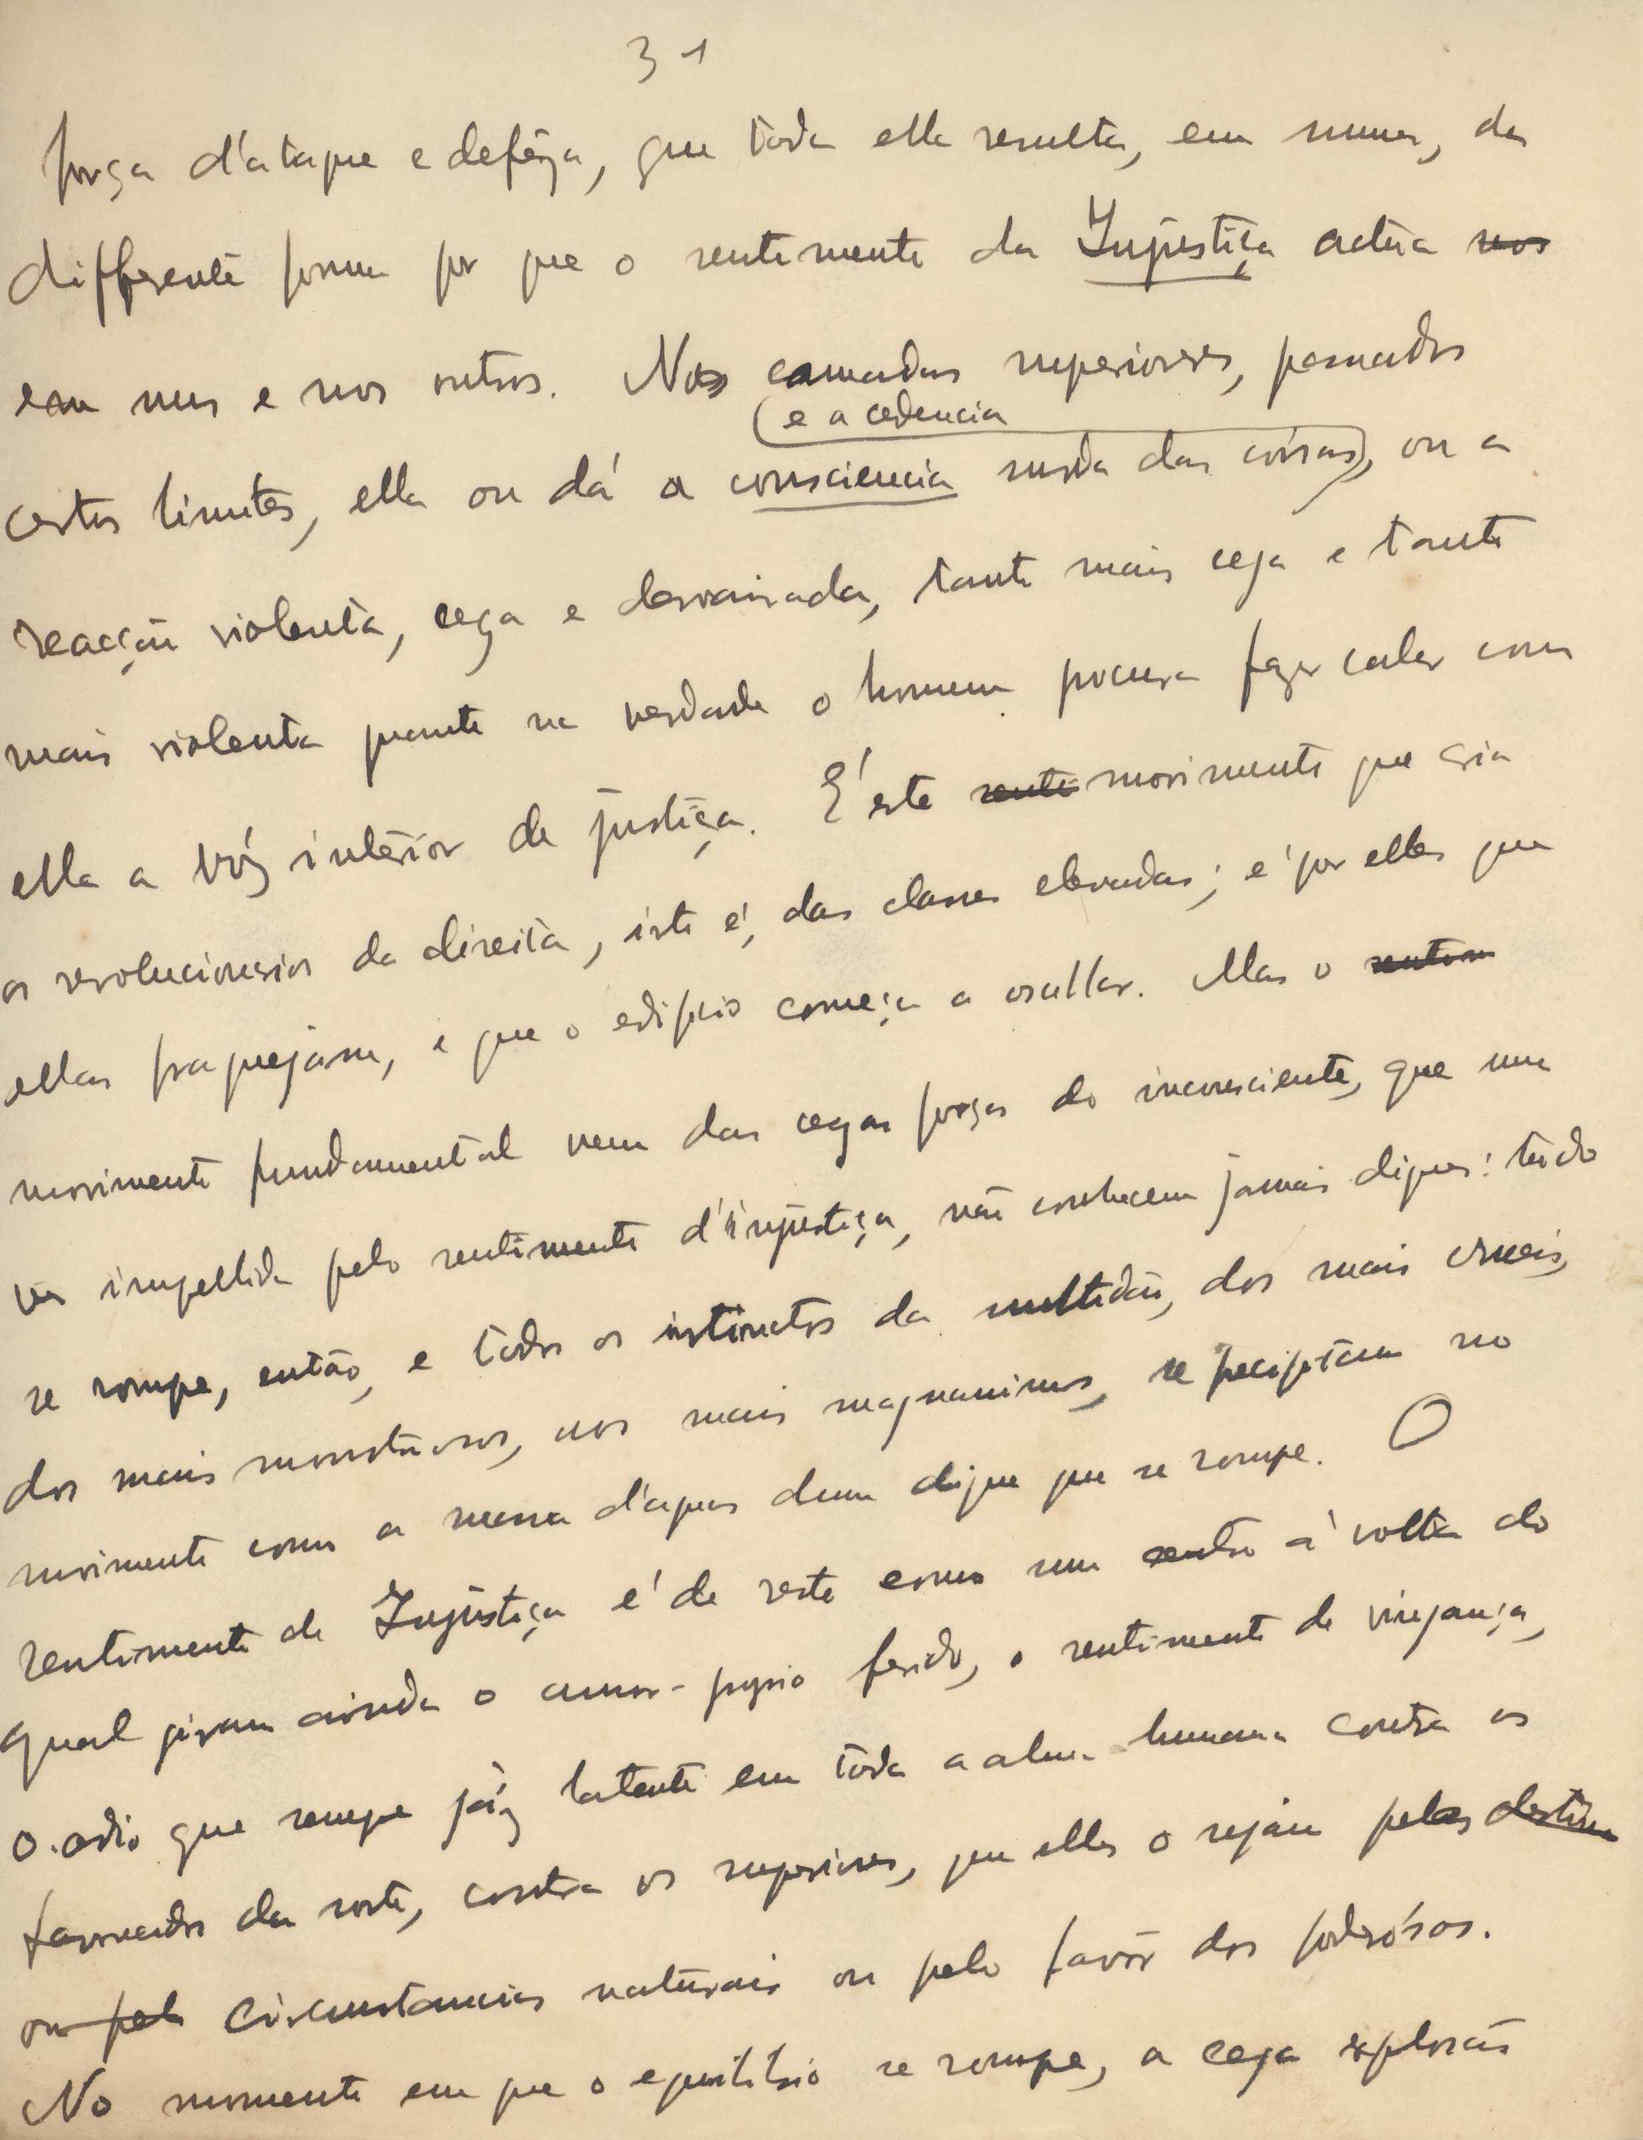 31
força d'ataque e defêza, que toda ella resulta, em summa, da
differente forma por que o sentimento da Injustiça actúa nos
em uns e nos outros. Nas camadas superiores, passados
e a cedencia
certos limites, ella ou dá a consciencia surda das coisas, ou a
reacção violenta, cega e desvairada, tanto mais cega e tanto
mais violenta quanto na verdade o homem procura fazer calar com
ella a vóz interior de justiça. É este senti movimento que cria
os revolucionarios da direita, isto é, das classes elevadas; e é por elles que
ellas fraquejam, e que o edificio começa a oscillar. Mas o sentim
movimento fundamental vem das cegas forças do inconsciente, que uma
vez impellida pelo sentimento d'injustiça, não conhecem jamais diques: tudo
se rompe, então, e todos os instinctos da multidão, dos mais crueis,
dos mais monstruosos, aos mais magnanimos, se precipitam no
movimento como a massa d'aguas dum dique que se rompe. O
sentimento de Injustiça é de resto como um centro á volta do
qual giram ainda o amor-proprio ferido, o sentimento de vingança,
o odio que sempre jáz latente em toda a alma humana contra os
favorecidos da sorte, contra os superiores, que elles o sejam pelas destino
ou pela circumstancias naturais ou pelo favôr dos poderósos.
No momento em que o equilibrio se rompe, a cega explosão